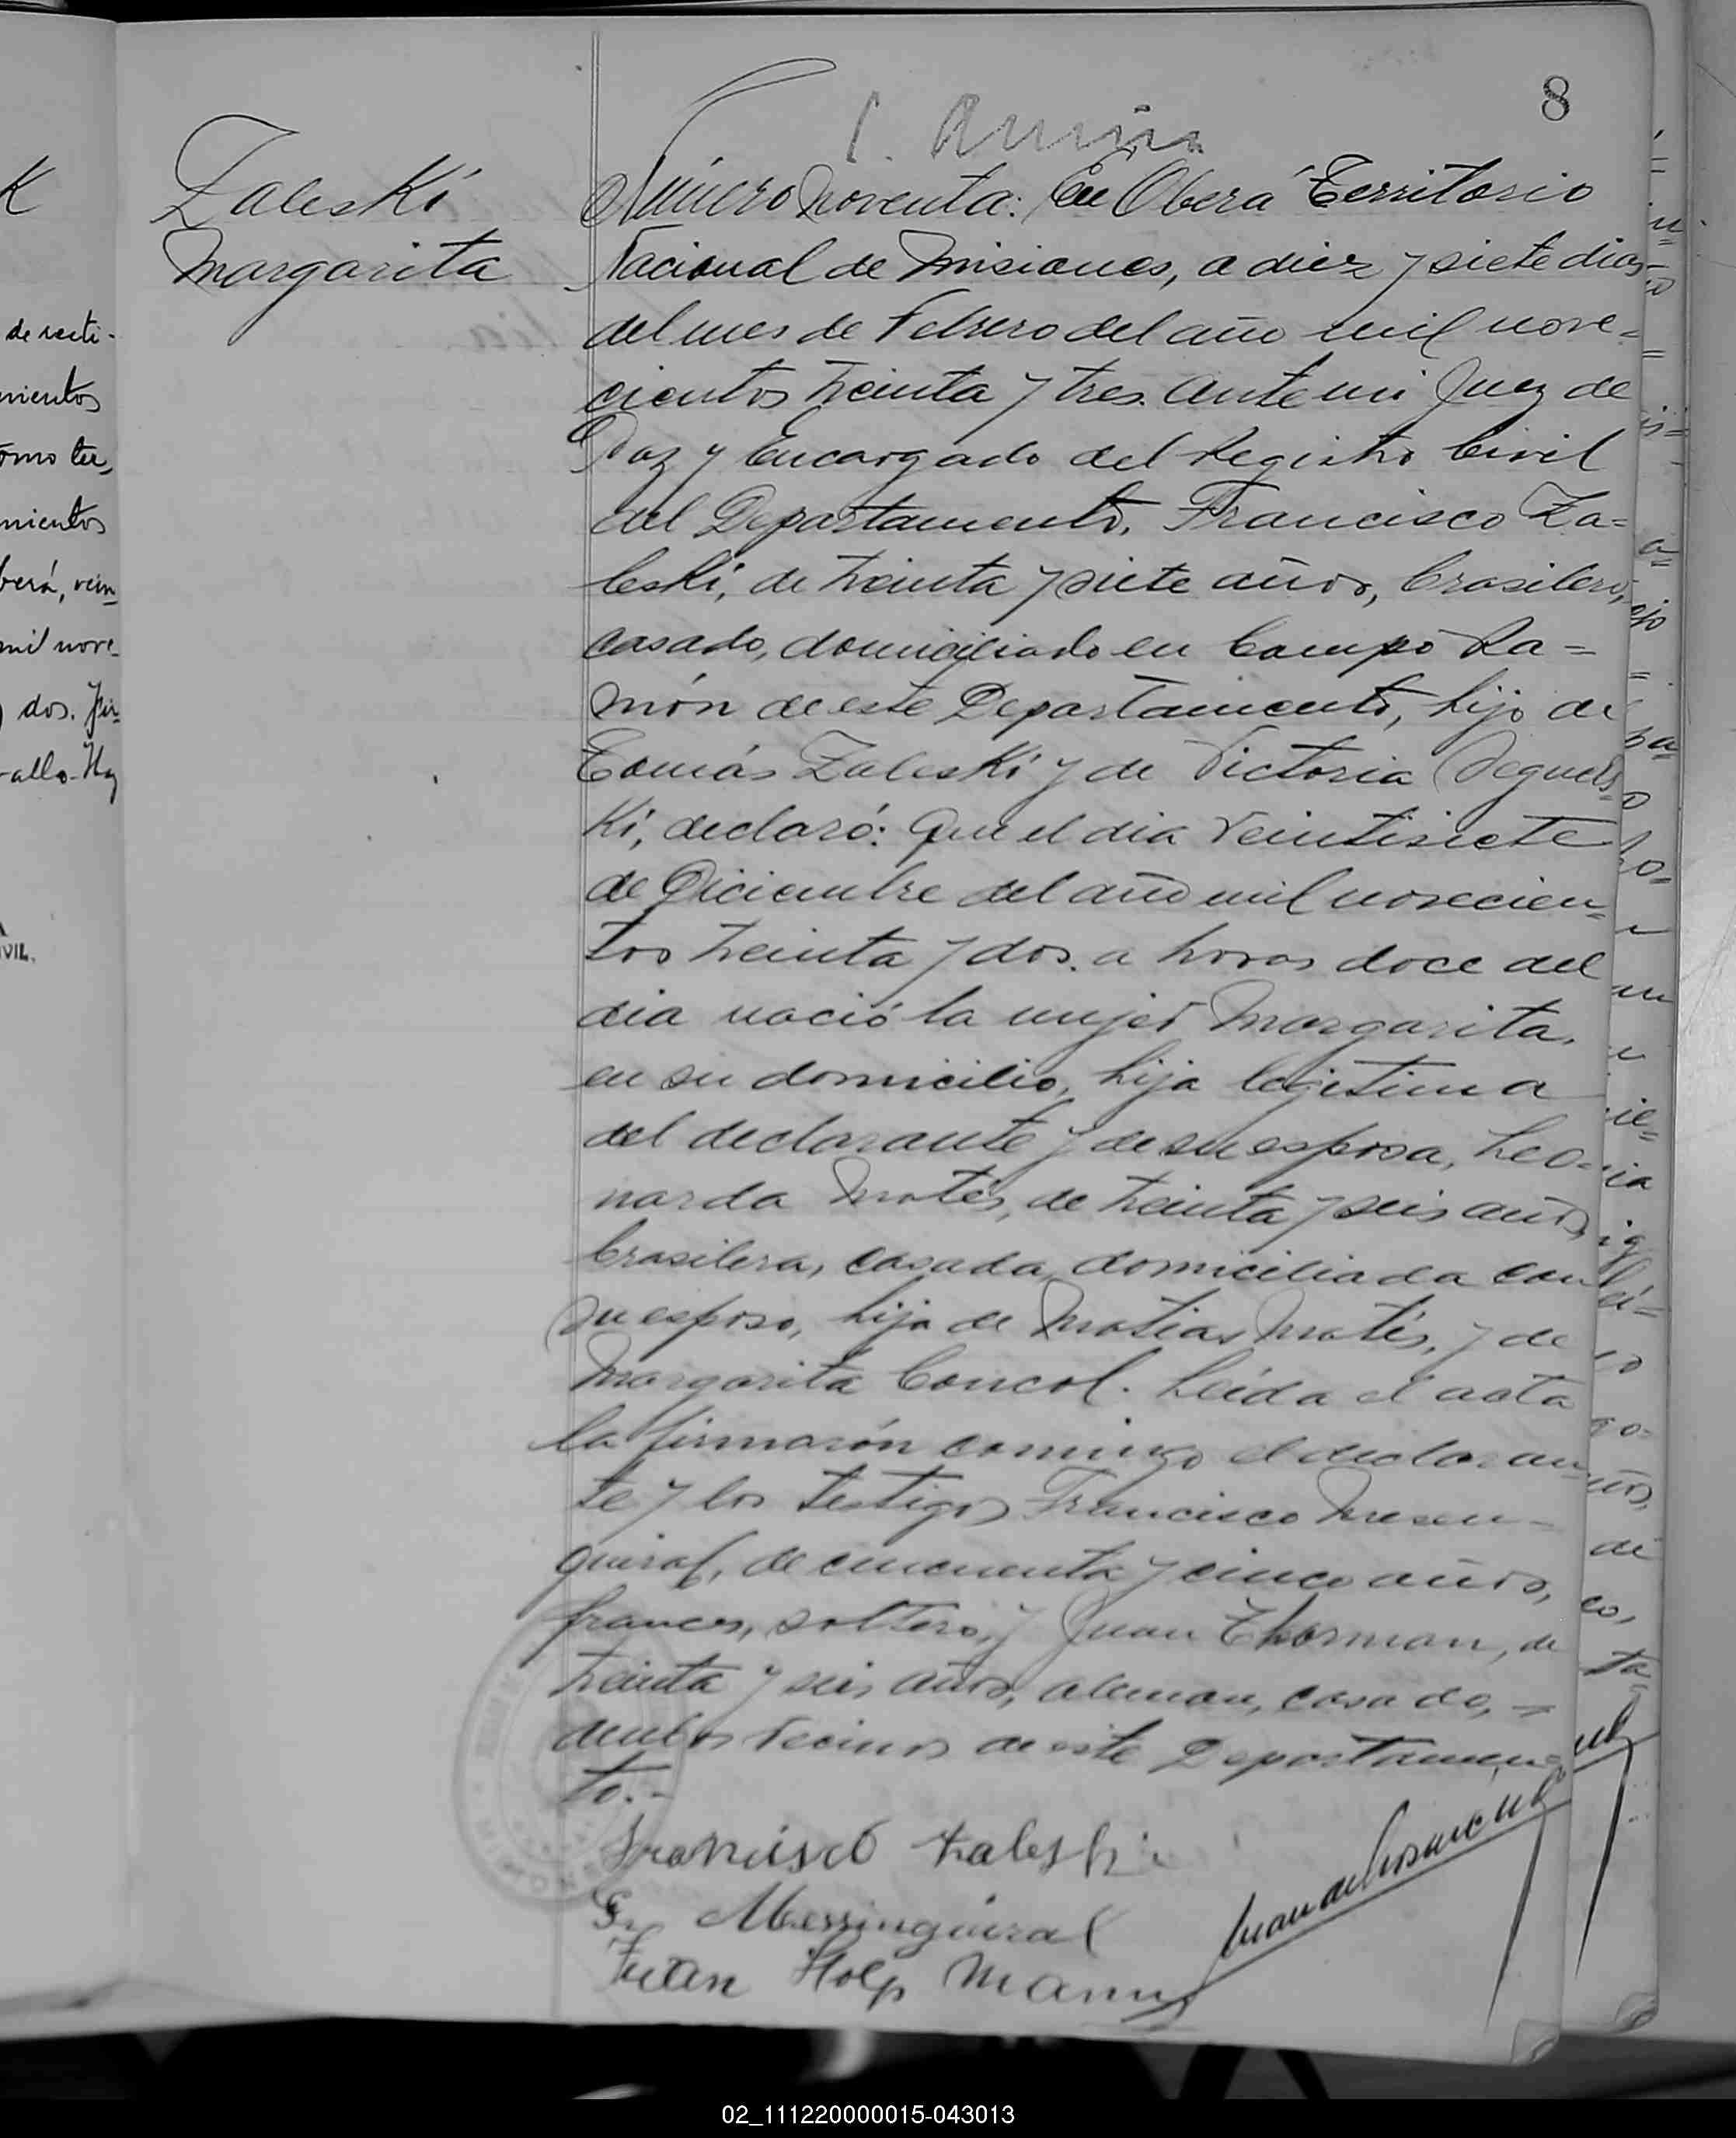 8
Zaleski
Margarita
Número noventa: En Oberá Territorio
Nacional de Misiones, a diez y siete dias
del mes de Febrero del año mil nove=
cientos treinta y tres. Ante mi Juez de
Paz y Encargado del Registro Civil
del Departamento, Francisco Za=
leski, de treinta y siete años, brasilero,
casado, domiciliado en Campo Ra=
món de este Departamento, hijo de
Tomás Zaleski y de Victoria
ki, declaró: Que el dia veintisiete
de Diciembre del año mil novecien=
tos treinta y dos. a horas doce del
dia nació la mujer Margarita,
en su domicilio, hija legitima
del declarante y de su esposa, Leo-
narda Matés, de treinta y seis años
brasilera, casada, domiciliada con
su esposo, hija de Matias Matés, y de
Margarita Concol. Leida el acta
la firmarón conmigo el declaran=
te y los testigos Francisco
de cincuenta y cinco años,
frances, soltero, y Juan Thorman, de
treinta y seis años, aleman, casado, =
vecinos de este Departamen=
to.-
Francisco Zaleski
Messinguiral
Juan
de recti-
mientos
omo tu,
mientos
berá, vein
mil nove-
dos.
VIL.
02_111220000015-043013